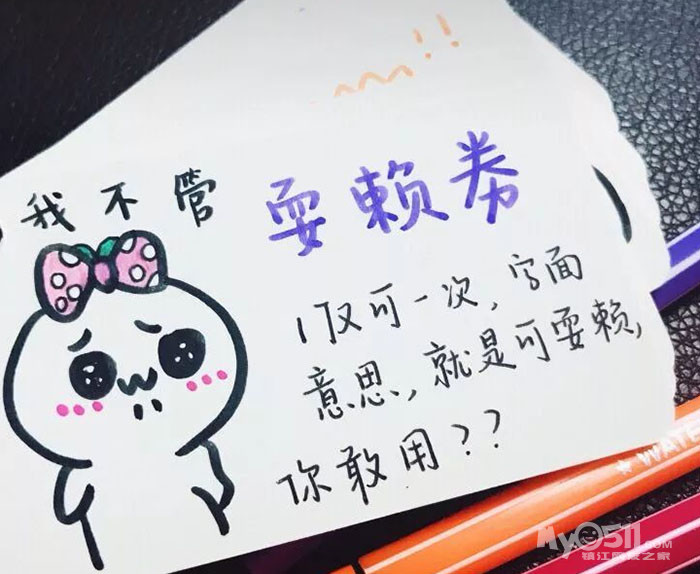 !!
我不管
耍赖券
仅可一次，字面
意思，就是可耍赖，
你敢用？？
★ WATE
My0511.com
镇江网友之家